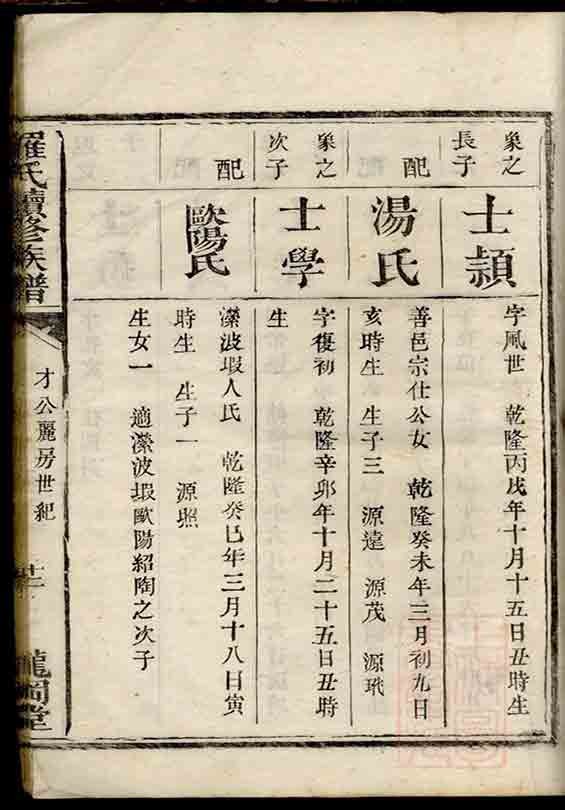 象之
長子
士頴
字風世 乾隆丙戌年十月十五日丑時生
配
湯氏
善邑宗仕公女 乾隆癸未年三月初九日
亥時生 生子三 源達 源茂 源玳
象之
次子
士學
字復初 乾隆辛卯年十月二十五日丑時
生
配
歐陽氏
濴波塅人氏 乾隆癸巳年三月十八日寅
時生 生子一 源照
生女一 適濴波塅歐陽紹陶之次子
羅氏續修族譜
才公麗房世紀
龍岡堂